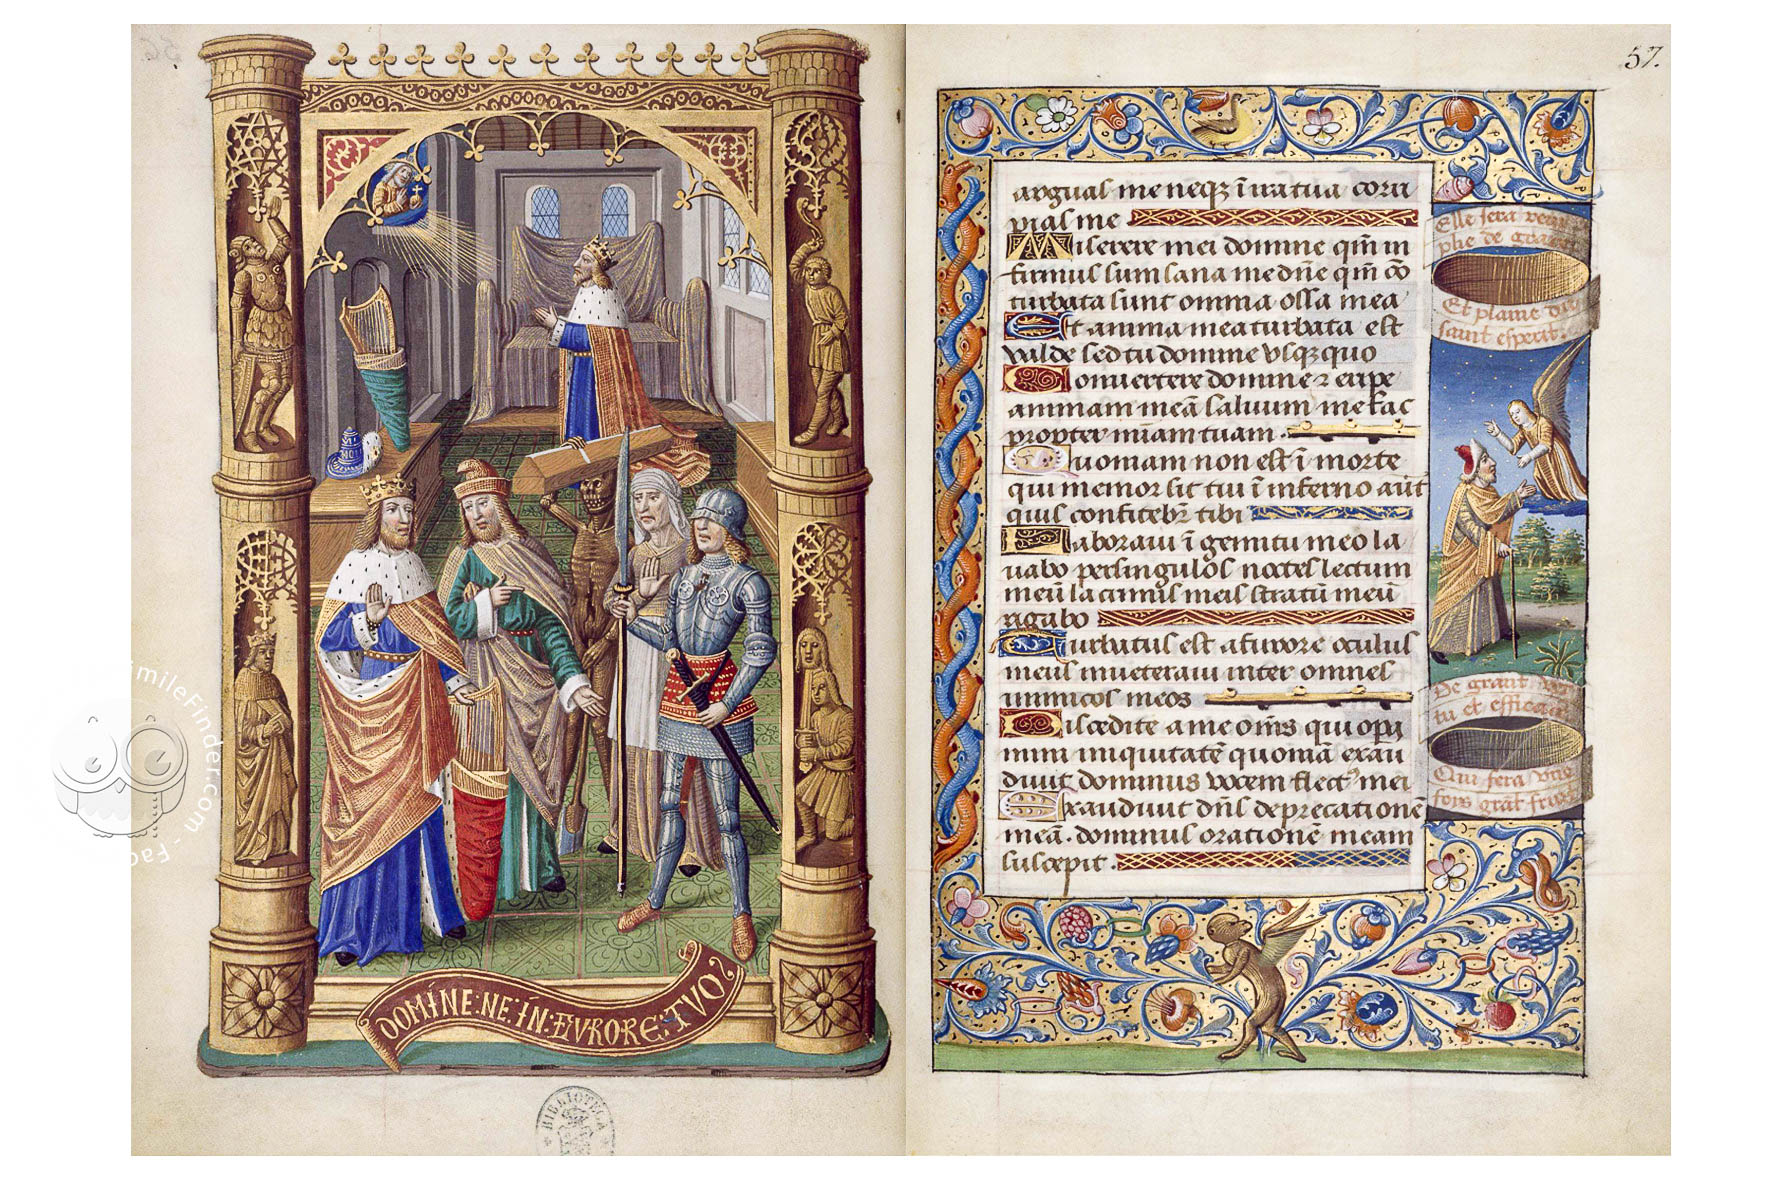 56
DOMINE:NE:IN:FVRORE:TVO
BIBLIOTECA
57.
arguas me neqz ĩ ira tua cori
pias me
Miserere mei domine qm̃ in
firmus sum sana me dñe qm̃ cõ
turbata sunt omnia ossa mea
Et anima mea turbata est
valde sed tu domine vsqzquo
Conuertere domine z eripe
animam meã saluum me fac
propter miam tuam.
Quoniam non est ĩ morte
qui memor sit tui ĩ inferno aut
quis confitebr tibi
Laboraui ĩ gemitu meo la
uabo per singulos noctes lectum
meũ lacrimis meis stratũ meũ
rigabo
Turbatus est a furore oculus
meus inueteraui inter omnes
inimicos meos
Discedite a me oms qui opera
mini iniquitatẽ quoniã exau
diuit dominus vocem fletus mei
Exaudiuit dñs deprecationẽ
meã. dominus orationẽ meam
suscepit.
Elle sera
plie de
Et plaine du
saint esperit.
De grant
tu et
Qui sera
fois
mileFinder.com - Fac